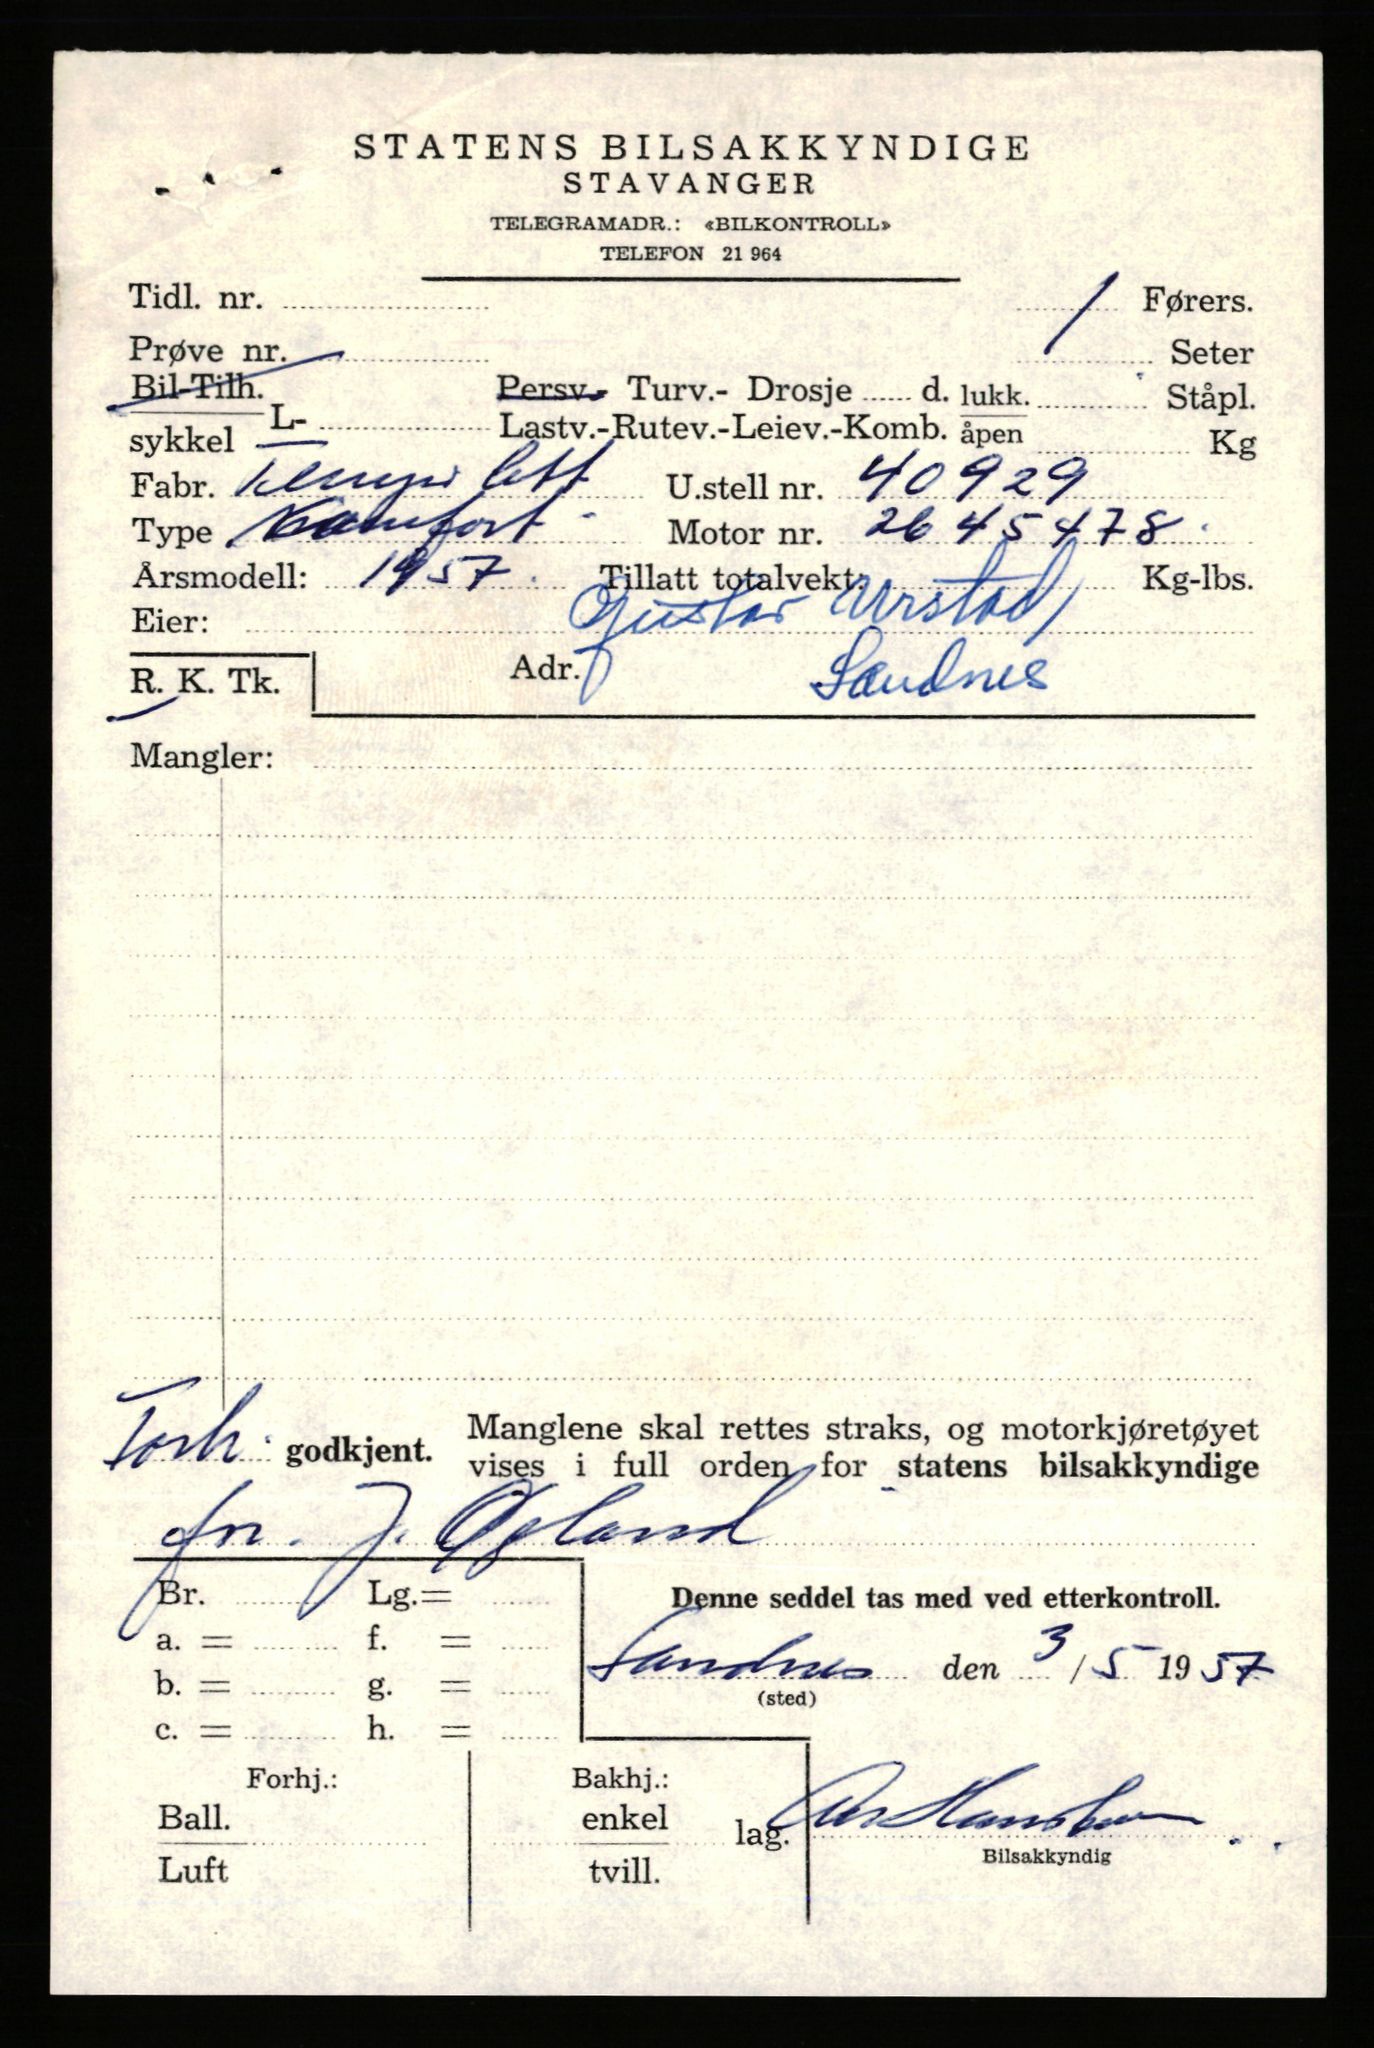 STATENS BILSAKKYNDIGE
STAVANGER
TELEGRAMADR.: «BILKONTROLL»
TELEFON 21 964
Tidl. nr. 1 Førers.
Prøve nr. Seter
Bil-Tilh. Persv.- Turv.- Drosje d. lukk. Ståpl.
sykkel L- Lastv.-Rutev.-Leiev.-Komb. åpen Kg
Fabr. Tempo lett U.stell nr. 40929
Type Comfort Motor nr. 2645478
Årsmodell: 1957 Tillatt totalvekt: Kg-lbs.
Eier: Gustav Urstad
R. K. Tk. Adr. Sandnes
Mangler:
Torh. godkjent. Manglene skal rettes straks, og motorkjøretøyet
vises i full orden for statens bilsakkyndige
for. J. Øgland
Br. Lg.= Denne seddel tas med ved etterkontroll.
a. = f. =
Sandnes den 3/5 1957
b. = g. = (sted)
c. = h. =
Forhj.: Bakhj.:
Ball. enkel lag.
Luft tvill. Bilsakkyndig